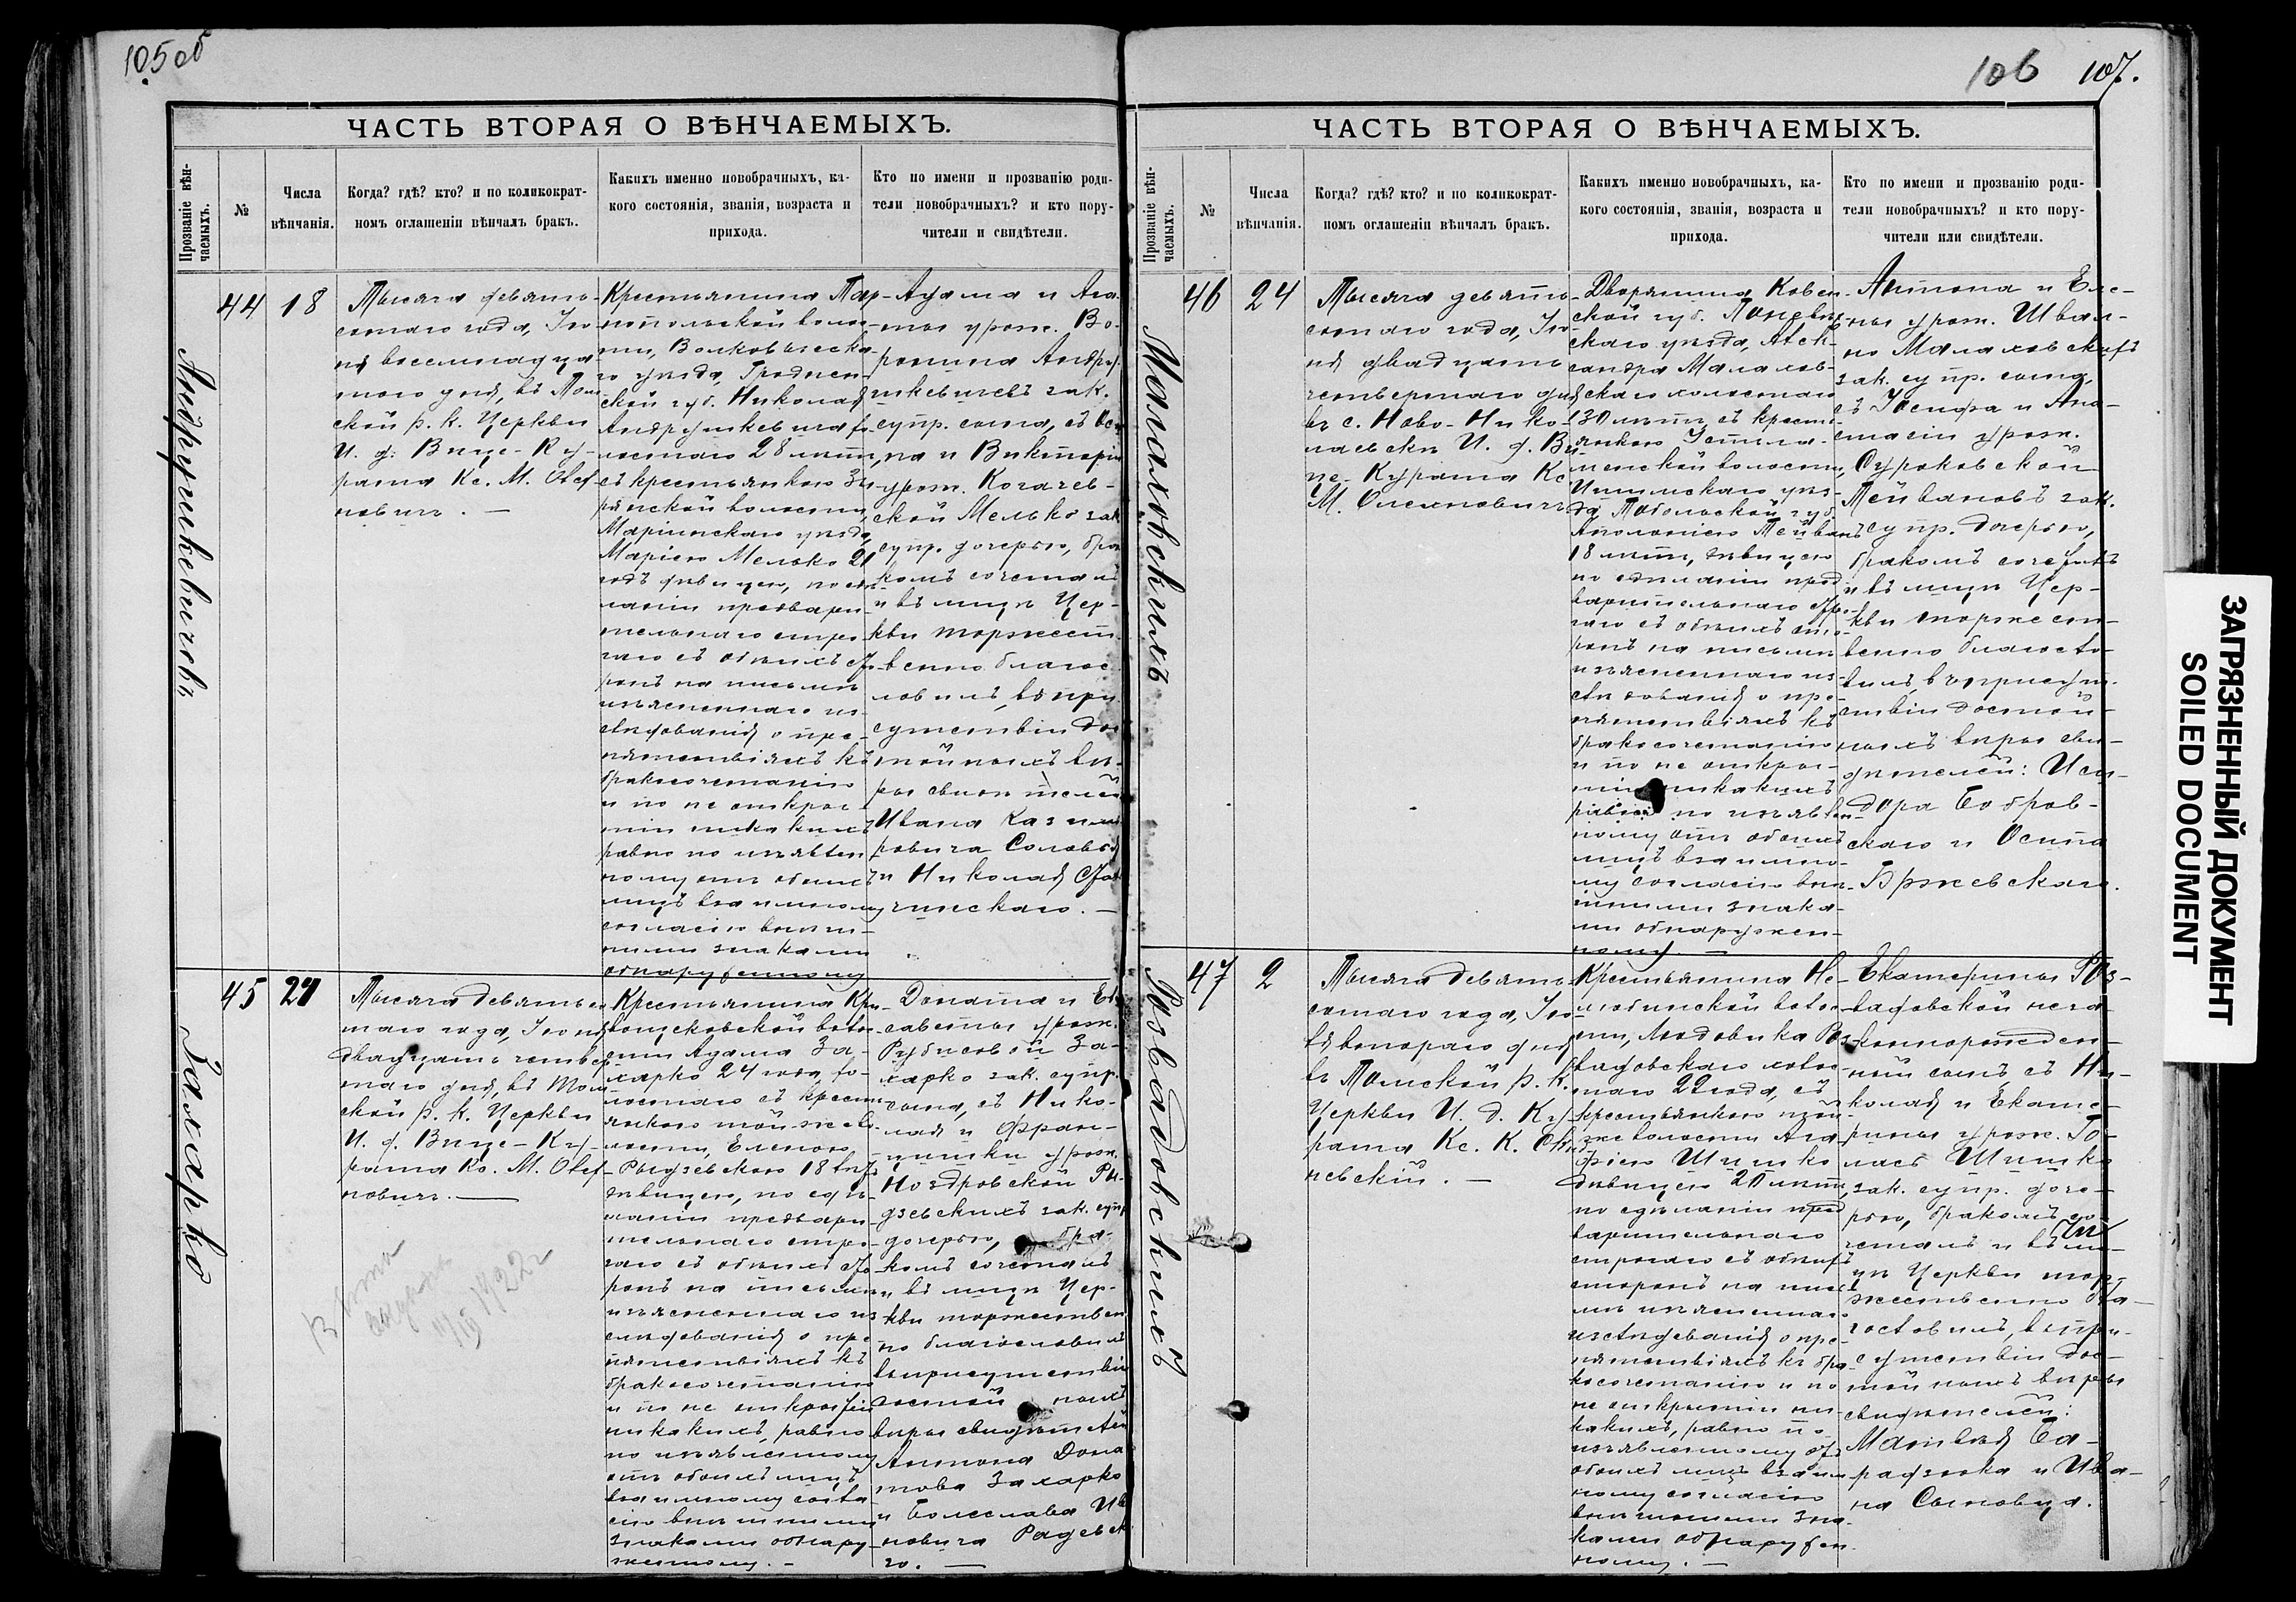 105 об
ЧАСТЬ ВТОРАЯ О ВѢНЧАЕМЫХЪ.
Прозваніе вѣн-
чаемыхъ.
№
Числа
вѣнчанія.
Когда? гдѣ? кто? и по коликократ-
номъ оглашеніи вѣнчалъ бракъ.
Какихъ именно новобрачныхъ, ка-
кого состоянія, званія, возраста и
прихода.
Кто по имени и прозванію роди-
тели новобрачныхъ? и кто пору-
чители и свидѣтели.
Андрушкевичевъ
44
18
Тысяча девять-
сотаго года, Iю-
ня восемнадца
таго дня, въ Том
ской р. к. Церкви
И. д. Вице-Ку-
рата Кс. М. Олех
новичъ. —
Крестьянина Пар-
нопольской воло-
сти, Волковыска-
го уѣзда, Гроднен-
ской губ. Николая
Андрушкевича хо-
лостаго 28 лѣтъ,
съ крестьянкою Зы-
рянской волости,
Маріинскаго уѣзда,
Маріею Мелько 21
годъ дѣвицею, по сдѣ-
ланіи предвари
тельнаго стро
гаго съ обѣихъ сто
ронъ на письмѣ
изъясненнаго из-
слѣдованія о пре-
пятствіяхъ къ
бракосочетанію
и по не откры-
тіи никакихъ
равно по изъявлен
ному отъ обоихъ
лицъ взаимному
согласію внѣш-
ними знаками
обнаруженному
Адама и Ага-
ты урож. Во-
ронина Андру-
шкевичевъ зак.
супр. сына, съ Оси
па и Викторіи
урож. Когачев-
ской Мелько зак
супр. дочерью, бра
комъ сочеталъ
и въ лицѣ Цер-
кви торжест-
венно благос-
ловилъ, въ при-
сутствіи дос
тойныхъ вѣ-
ры свидѣтелей
Ивана Кази
ровича Соловья
и Николая Сто
чинскаго. —
Захарко
45
24
Тысяча девятьсо
таго года, Iюня
двадцать четвер
таго дня, въ Том
ской р. к. Церкви
И. д. Вице-Ку-
рата Кс. М. Олех
новичъ. —
1922 г
Крестьянина Кри
вощековской воло
сти Адама За-
харко 24 года, хо-
лостаго съ кресть
янкою той же во
лости, Еленою
Рыдзевскою 18 лѣтъ
дѣвицею, по сдѣ-
ланіи предвари
тельнаго стро
гаго съ обѣихъ сто
ронъ на письмѣ
изъясненнаго из
слѣдованія о пре
пятствіяхъ къ
бракосочетанію
и по не открытіи
никакихъ, равно
по изъявленному
отъ обоихъ лицъ
взаимному согла
сію внѣшними
знаками обнару-
женному. —
Доната и Ели
саветы урож.
Рубисовой За-
харко зак. супр.
сына, съ Нико-
лая и Фран-
цишки урож.
Ноздровской Ры-
дзевскихъ зак. супр
дочерью, бра-
комъ сочеталъ
и въ лицѣ Цер-
кви торжествен
но благословилъ
въ присутствіи
достой ныхъ
вѣры свидѣтелей
Антона Дона
това Захарко
и Болеслава Ива
новича Радевска
го. —
106 107.
ЧАСТЬ ВТОРАЯ О ВѢНЧАЕМЫХЪ.
Прозваніе вѣн-
чаемыхъ.
№
Числа
вѣнчанія.
Когда? гдѣ? кто? и по коликократ-
номъ оглашеніи вѣнчалъ бракъ.
Какихъ именно новобрачныхъ, ка-
кого состоянія, званія, возраста и
прихода.
Кто по имени и прозванію роди-
тели новобрачныхъ? и кто пору-
чители или свидѣтели.
Малаховскихъ
46
24
Тысяча девять-
сотаго года, Iю-
ня двадцать
четвертаго дня
въ с. Ново-Нико-
лаевскѣ И. д. Ви
це-Курата Кс.
М. Олехновичъ
Дворянина Ковен-
ской губ. Поневѣж
скаго уѣзда, Алек-
сандра Малахов-
скаго холостаго
30 лѣтъ, съ кресть
янкою Устьла-
менской волости,
Ишимскаго уѣз-
да Тобольской губ.
Аполоніею Тейванъ
18 лѣтъ, дѣвицею
по сдѣланіи пред
варительнаго стро
гаго съ обѣихъ сто
ронъ на письмѣ
изъясненнаго из-
слѣдованія о пре-
пятствіяхъ къ
бракосочетанію
и по не откры-
тіи никакихъ
равно по изъявлен
ному отъ обоихъ
лицъ взаимно-
му согласію внѣ-
шними знака-
ми обнаружен-
ному. —
Антона и Еле-
ны урож. Швал-
но Малаховскихъ
зак. супр. сына,
съ Iосифа и Ана-
стасіи урож.
Суроковской
Тейвановъ зак.
супр. дочерью,
бракомъ сочеталъ
и въ лицѣ Цер-
кви торжест-
венно благосло-
вилъ, въ присут-
ствіи достой-
ныхъ вѣры сви-
дѣтелей: Иси-
дора Бобров-
скаго и Осипа
Бржевскаго.
Розвадовскихъ
47
2
Тысяча девять-
сотаго года, Iю-
ля втораго дня
въ Томской р. к.
Церкви И. д. Ку-
рата Кс. К.
невскій. —
Крестьянина Не-
любинской воло
сти, Людовика Роз
вадовскаго холос-
таго 22 года, съ
крестьянкою той
же волости Ага-
фіею Шишко
дѣвицею 20 лѣтъ,
по сдѣланіи пред
варительнаго
строгаго съ обѣихъ
сторонъ на пись
мѣ изъясненнаго
изслѣдованія о пре-
пятствіяхъ къ бра
косочетанію и по
не открытіи ни-
какихъ, равно по
изъявленному отъ
обоихъ лицъ взаим
ному согласію
внѣшними зна-
ками обнаружен
ному. —
Екатерины Роз-
вадовской неза-
коннорожден-
ной сынъ, съ Ни-
колая и Екате-
рины урож. Го-
ласъ Шишко
зак. супр. доче-
рью, бракомъ со-
четалъ и въ ли-
цѣ Церкви тор-
жественно бла-
гословилъ, въ при-
сутствіи дос-
тойныхъ вѣры
свидѣтелей:
Матвѣя Ба-
радзюка и Ива-
на Сыновца.
ЗАГРЯЗНЕННЫЙ ДОКУМЕНТ
SOILED DOCUMENT